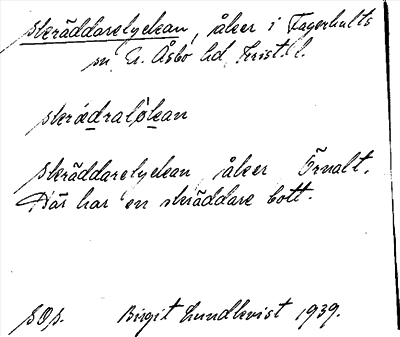 skräddarelyckan, åker i Fagerhults
sn Ö. Åsbo hd Krist. l.
skrædralỏkan
Skräddarelyckan åker Örnalt.
Där har en skräddare bott.
sOp. Birgit Lundkvist 1939.